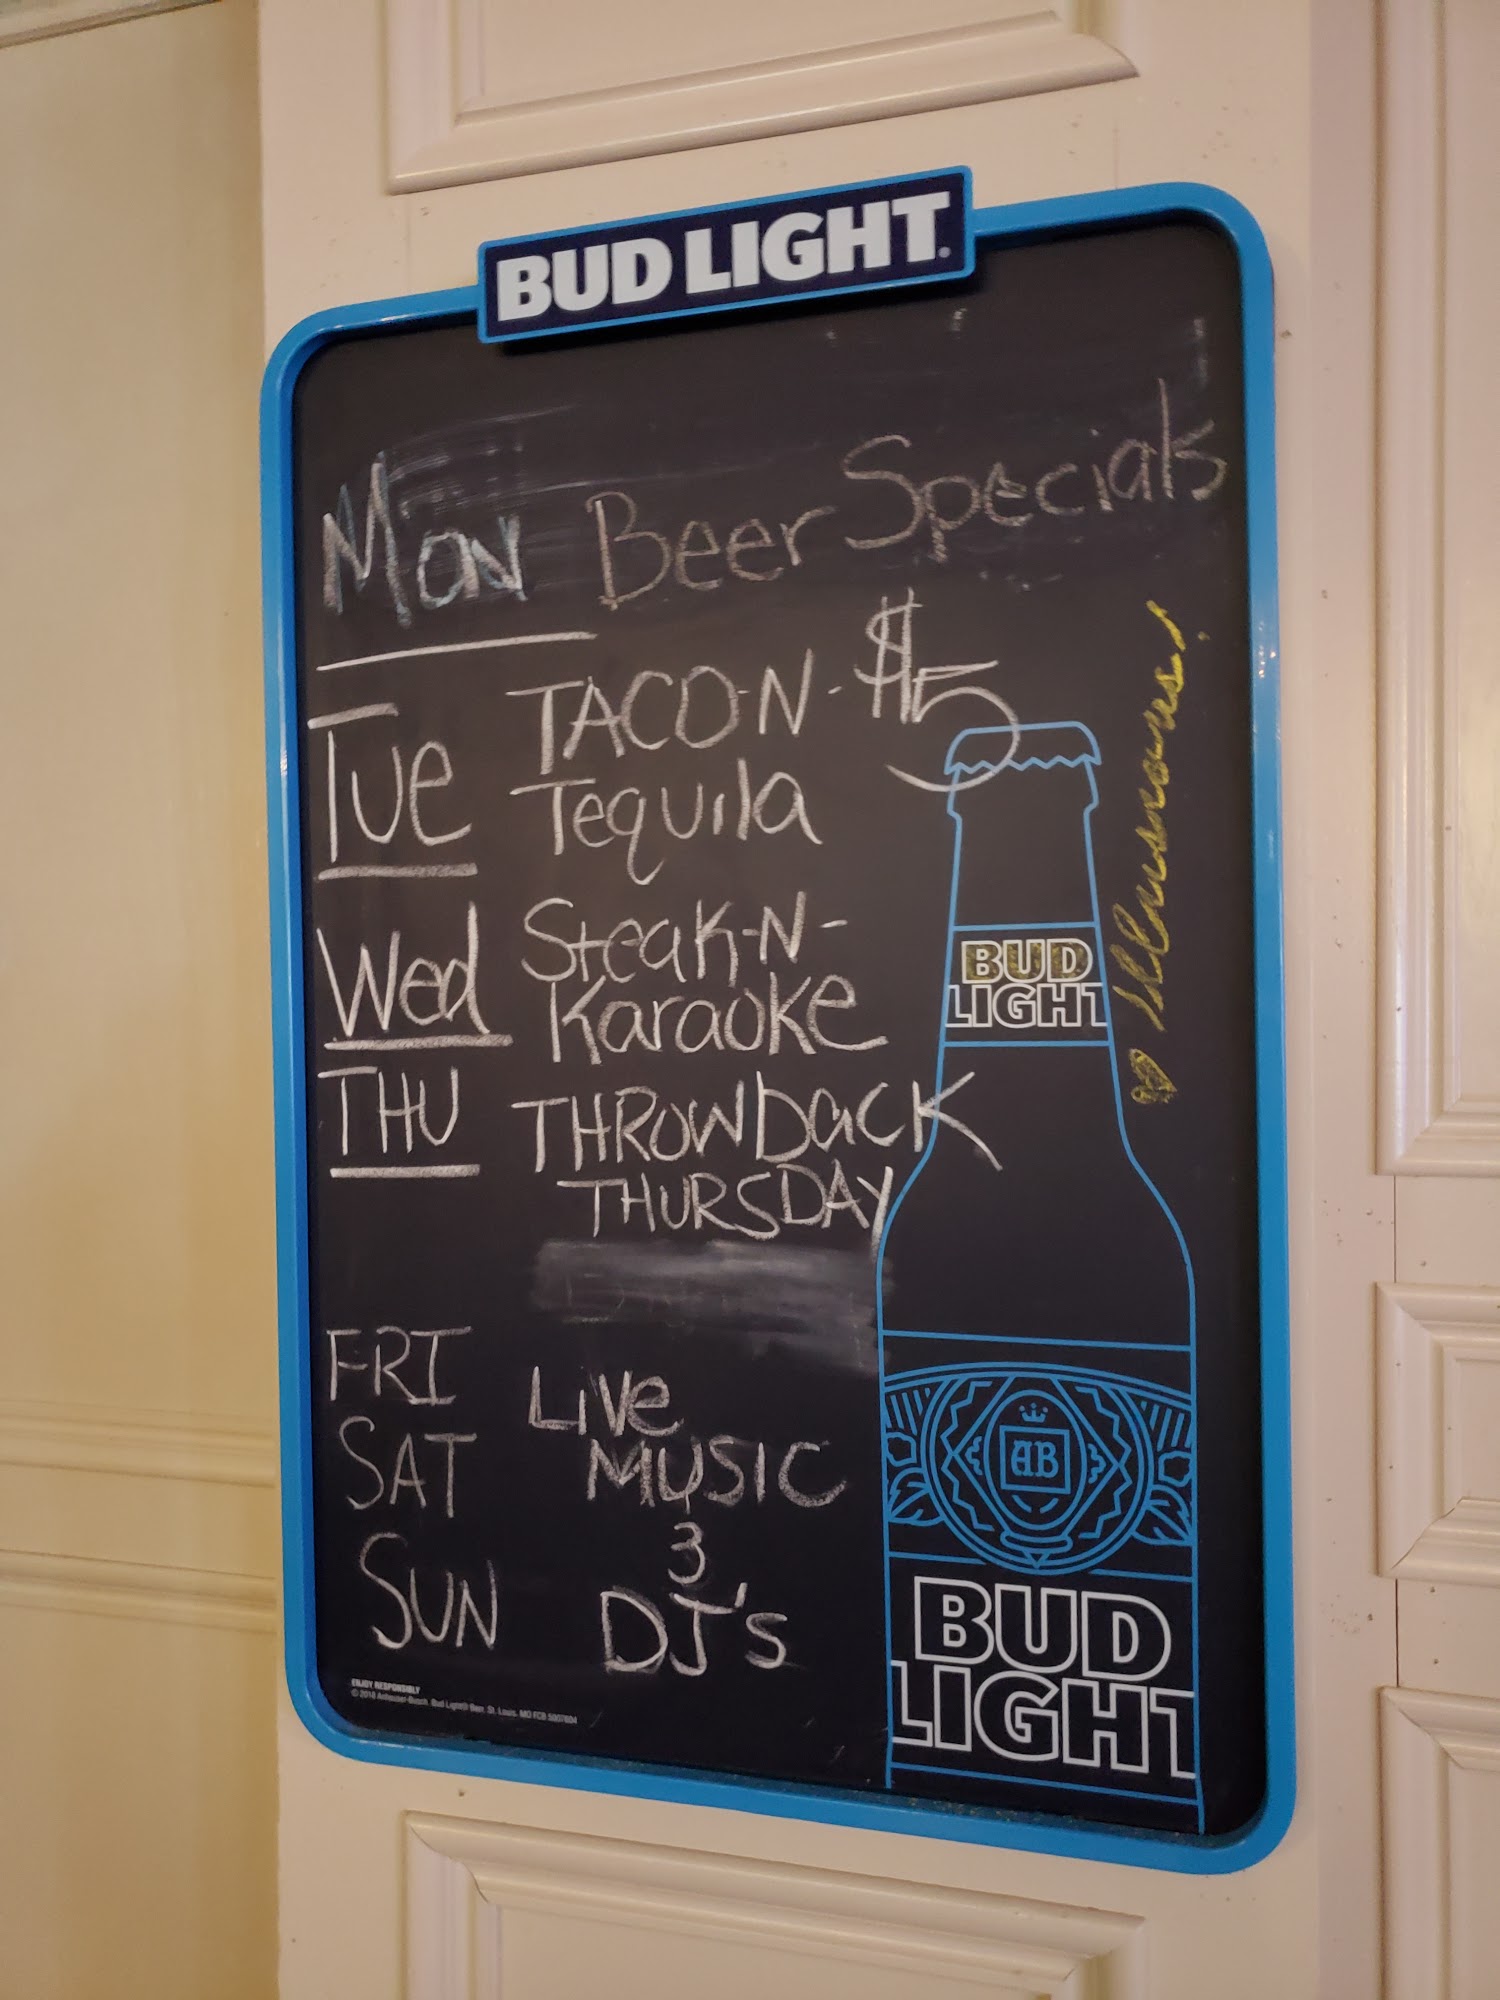 BUD LIGHT
Mon Beer Specials
Tue TACO-N- $5
Tequila
Wed Steak-N-
Karaoke
THU THROWback
THURSDAY
FRI Live
SAT MUSIC
3
SUN DJ's
BUD
LIGHT
AB
BUD
LIGHT
ENJOY RESPONSIBLY
© 2018 Anheuser-Busch, Bud Light® Beer, St. Louis, MO